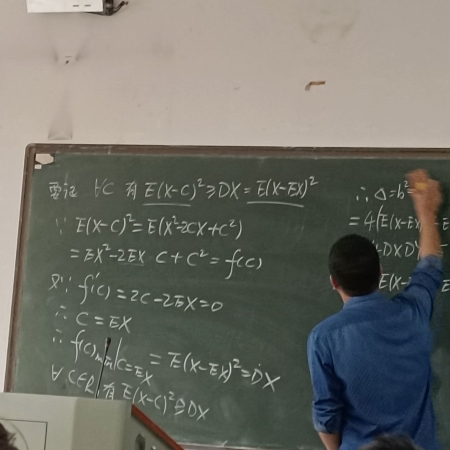 要证 ∀C 有 E(X-C)²≥DX=E(X-EX)²
∵ E(X-C)²=E(X²-2CX+C²)
=EX²-2EX C+C²=f(C)
又∵ f'(C)=2C-2EX=0
∴ C=EX
∴ f(C)min|C=EX =E(X-EX)²=DX
∀C∈R 有 E(X-C)²≥DX
∴ Δ=b²
=4(E(X-EX)
DXDY
E(X-